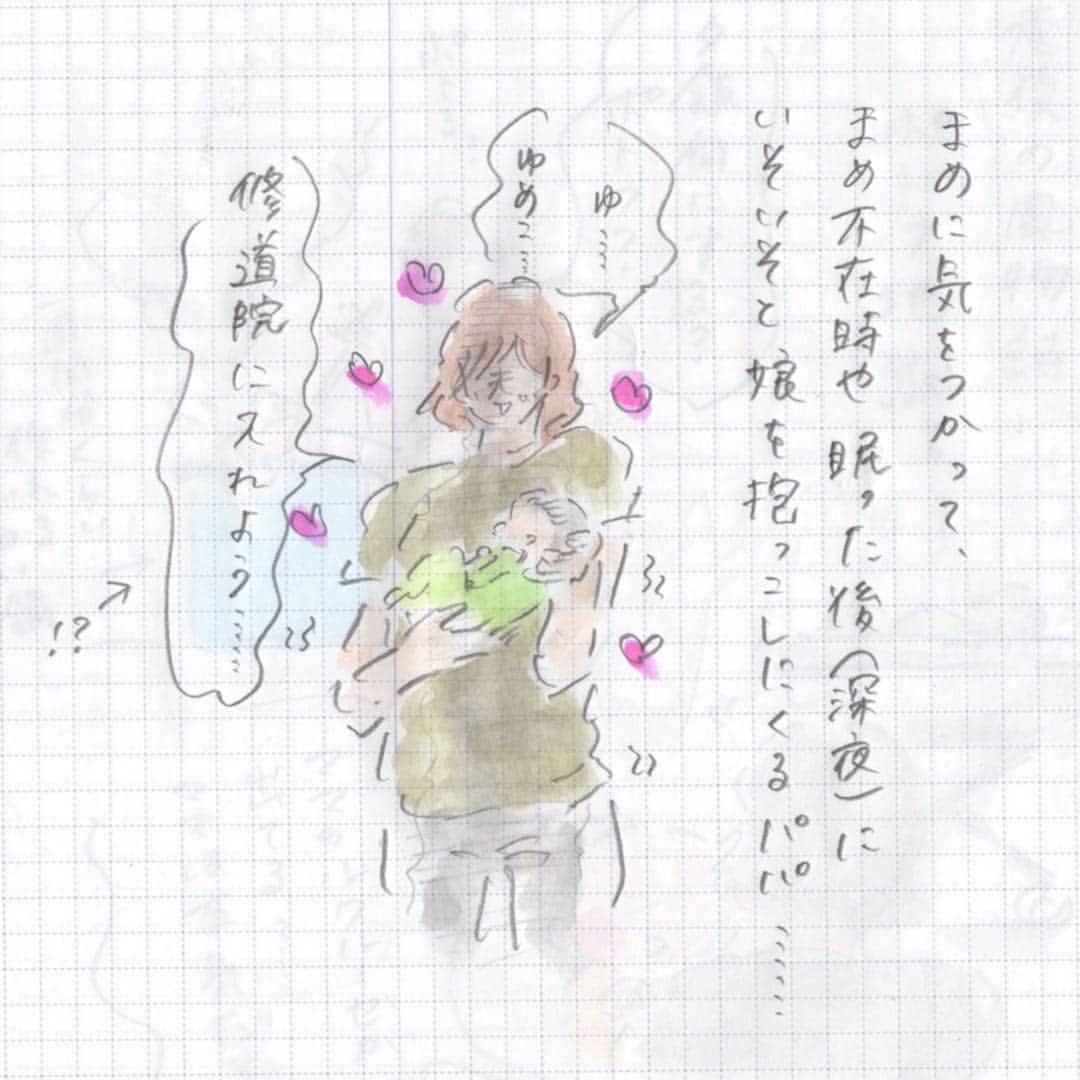 まめに気をつかって、
まめ不在時や眠った後(深夜)に
いそいそと娘を抱っこしにくるパパ……
ゆ……
ゆめこ……
修道院に入れよう……
!?